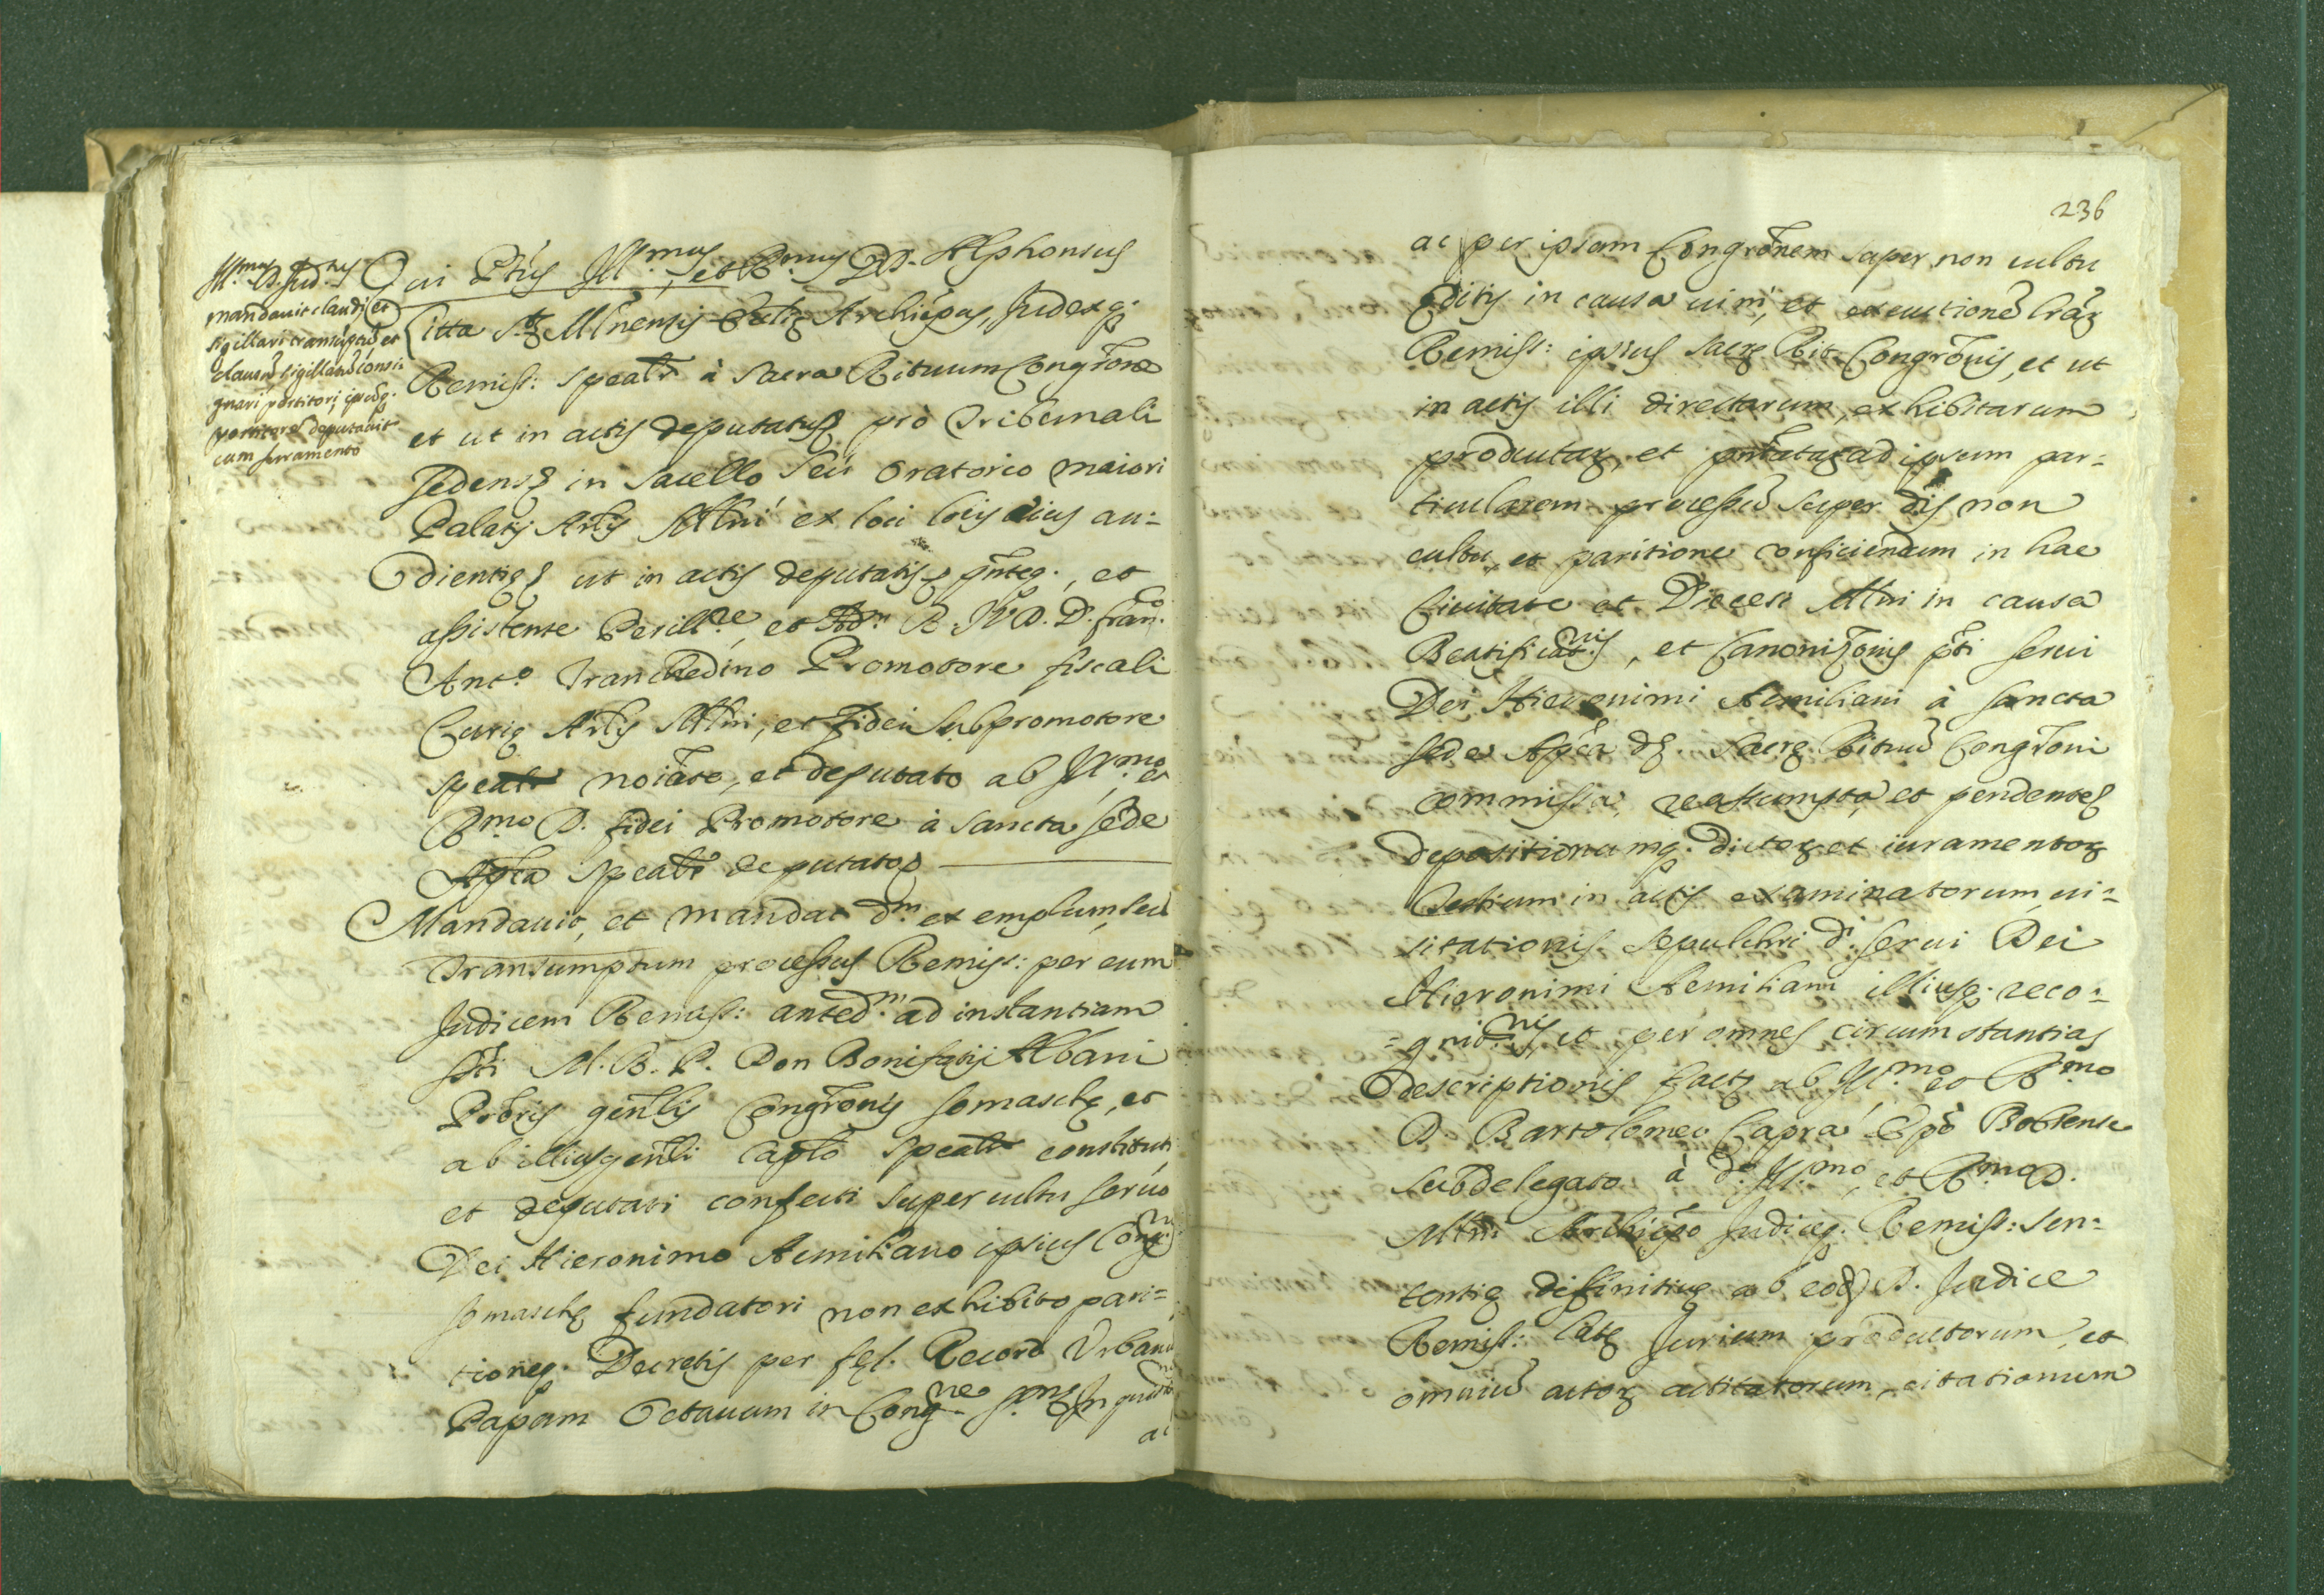 Ill.mus D. Jud.
mandavit claudi, et
sigillari transũptũ et
clausũ sigillatũ consi=
gnari portitori, ipsũq.
portitorẽ deputavit
cum juramento
Qui Ptũs Ill.mus, et R.mus D.D. Alphonsus
Litta S.tę Mlnensis Ecclię Archiepus, Judexq.
Remiss: spealr à Sacra Rituum Congrõne
et ut in actis deputatus pro Tribunali
sedens in sacello seu oratorio maiori
Palatij Arlis Mlni ex loci locis eius au=
dientię ut in actis deputatis
assistente Perill.re, et Adm. R. J.V.D. D. Fran.co
Ant.o Tranchedino Promotore fiscali
Curię Arlis Mlni, et fidei subpromotore
spealr noiato, et deputato ab Ill.mo, et
R.mo D. fidei Promotore à Sancta Sede
Aplica spealr deputato
Mandavit, et mandat d.m exemplum, seu
transumptum processus Remiss: per eum
Judicem Remiss: anted.m ad instantiam
pti M. R. P. Don Bonifatij Albani
Prõris genlis Congrõnis Somaschę, et
ab illius genli caplo spealr constituti
et deputati confecti super cultu servo
Dei Hieronimo Aemiliano ipsius Cong.nis
Somaschę fundatori non exhibito pari=
tioneq. Decretis per fęl. Record. Urbanũ
Papam Octavum in Cong.ne
ac
236
ac per ipsam Congrõnem super non cultu
editis in causa et executionẽ
Remiss: ipsius Sacrę Rit. Congrõnis, et ut
in actis illi directarum, exhibitarum
productaȝ, et pntataȝ ad ipsum par=
ticularem processũ super dis non
cultu, et paritione conficiendum in hac
Civitate et Diecesi Mlni in causa
Beatificat.nis, et Canonizõnis pti servi
Dei Hieronimi Aemiliani à Sancta
Sede Aplica Sacrę Rituũ Congrõni
commissa, reassumpta, et pendente
depositionumq. dictoȝ et iuramentoȝ
Testium in actis examinatorum, vi=
sitationis sepulchri d.i servi Dei
Hieronimi Aemiliani illiusq. reco=
=gnit.nis, et per omnes circumstantias
descriptionis factę ab Ill.mo, et R.mo
D. Bartolomeo Capra Epo Bobiense
subdelegato à d.o Ill.mo, et R.mo D.
Mlni Archiepo Judiceq. Remiss: sen=
tentię difinitivę ab eod D. Judice
Remiss: latę Jurium productorum, et
omniũ actoȝ actitatorum, citationum